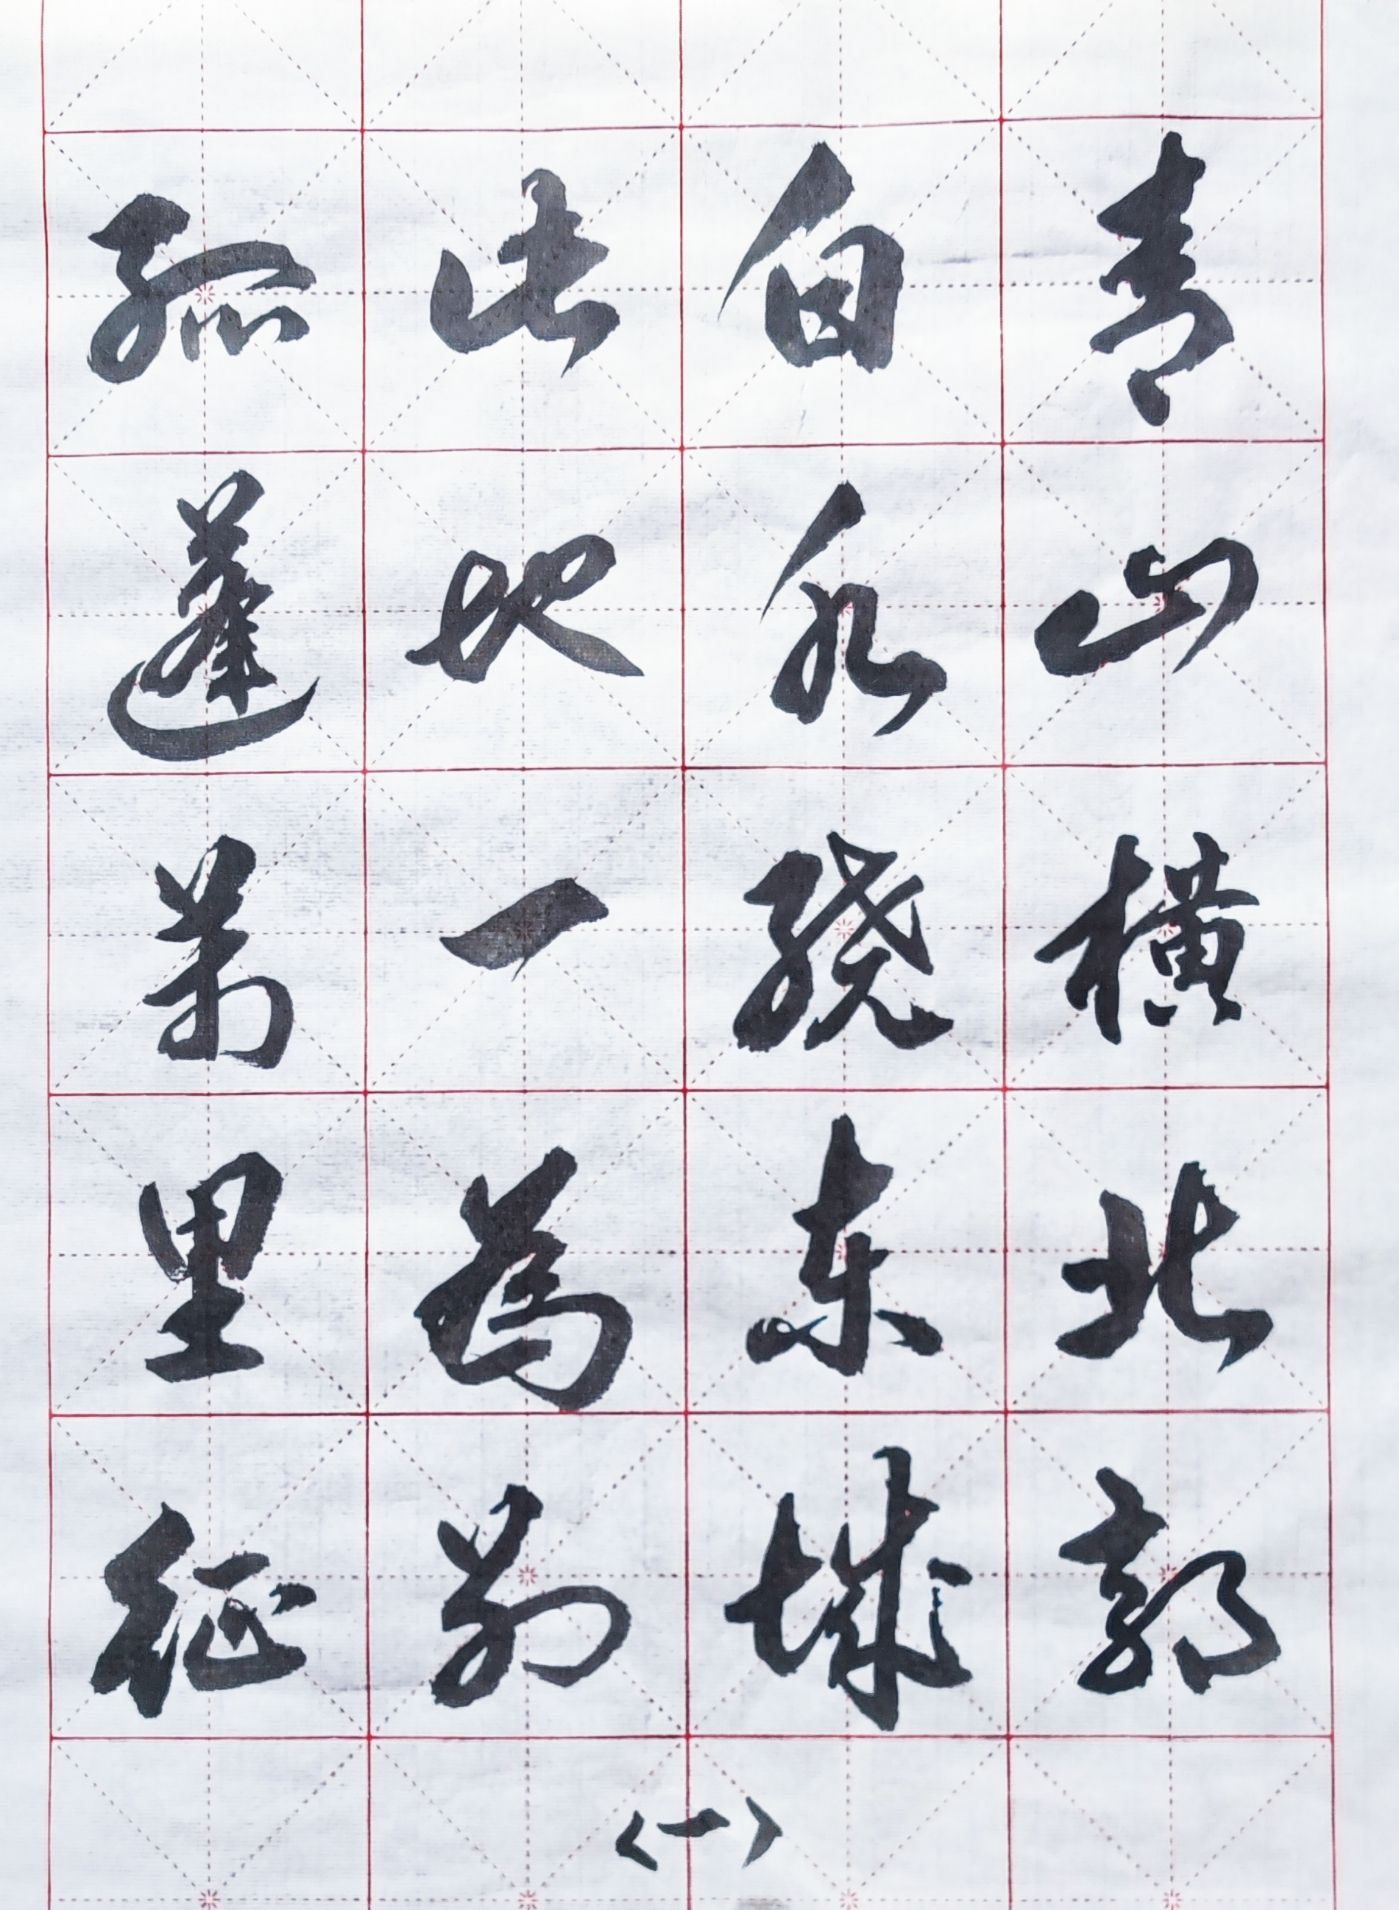 青山橫北郭
白水绕东城
此地一為别
孤蓬萬里征
〈一〉